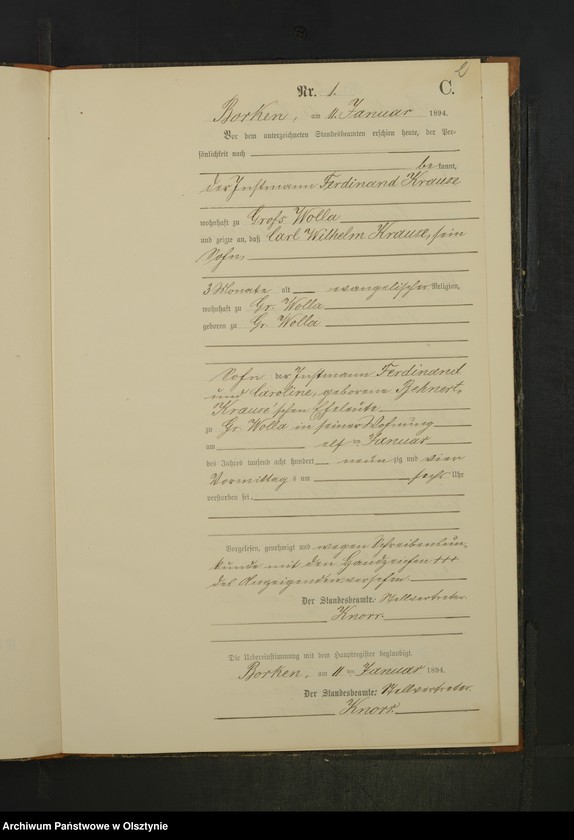 2
Nr. 1. C.
Borken, am 11. Januar 1894.
Vor dem unterzeichneten Standesbeamten erschien heute, der Per-
sönlichkeit nach
be kannt,
der Instmann Ferdinand Krause
wohnhaft zu Groß Wolla
und zeigte an, daß Carl Wilhelm Krause, sein
Sohn,
3 Monate alt evangelischer Religion,
wohnhaft zu Gr. Wolla
geboren zu Gr. Wolla
Sohn der Instmann Ferdinand
und Caroline, geborene Behnert,
Krause'schen Eheleute
zu Gr. Wolla in seiner Wohnung
am elf ten Januar
des Jahres tausend acht hundert neun zig und vier
Vormittag s um sechs Uhr
verstorben sei.
Vorgelesen, genehmigt und wegen Schreibensun-
kunde mit den Handzeichen +++
des Anzeigenden versehen.
Der Standesbeamte. Stellvertreter.
Knorr.
Die Uebereinstimmung mit dem Hauptregister beglaubigt.
Borken, am 11 ten Januar 1894.
Der Standesbeamte: Stellvertreter.
Knorr.
Archiwum Państwowe w Olsztynie